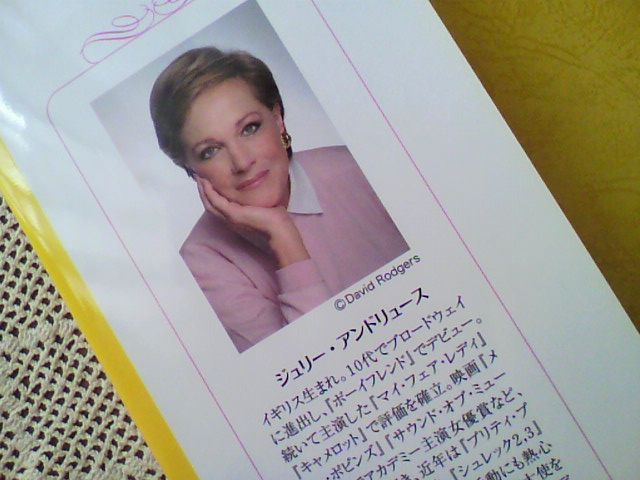 ©David Rodgers
ジュリー・アンドリュース
イギリス生まれ。10代でブロードウェイ
に進出し、『ボーイフレンド』でデビュー。
続いて主演した『マイ・フェア・レディ』
『キャメロット』で評価を確立。映画『メ
・ポピンズ』『サウンド・オブ・ミュー
アカデミー主演女優賞など、
近年は『プリティ・プ
『シュレック2,3』
動にも熱心
使を